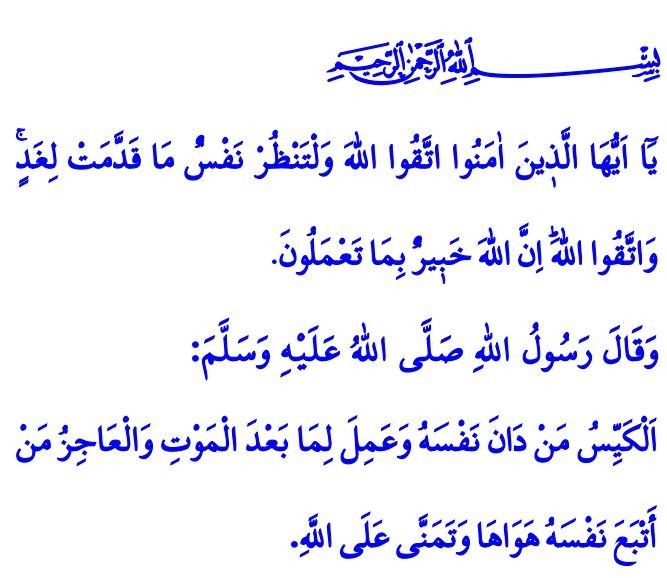 بِسْمِ اللهِ الرَّحْمٰنِ الرَّحِيمِ
يَٓا اَيُّهَا الَّذ۪ينَ اٰمَنُوا اتَّقُوا اللّٰهَ وَلْتَنْظُرْ نَفْسٌ مَا قَدَّمَتْ لِغَدٍۚ
وَاتَّقُوا اللّٰهَۜ اِنَّ اللّٰهَ خَب۪يرٌ بِمَا تَعْمَلُونَ.
وَقَالَ رَسُولُ اللّٰهِ صَلَّى اللّٰهُ عَلَيْهِ وَسَلَّمَ:
اَلْكَيِّسُ مَنْ دَانَ نَفْسَهُ وَعَمِلَ لِمَا بَعْدَ الْمَوْتِ وَالْعَاجِزُ مَنْ
أَتْبَعَ نَفْسَهُ هَوَاهَا وَتَمَنَّى عَلَى اللَّهِ.